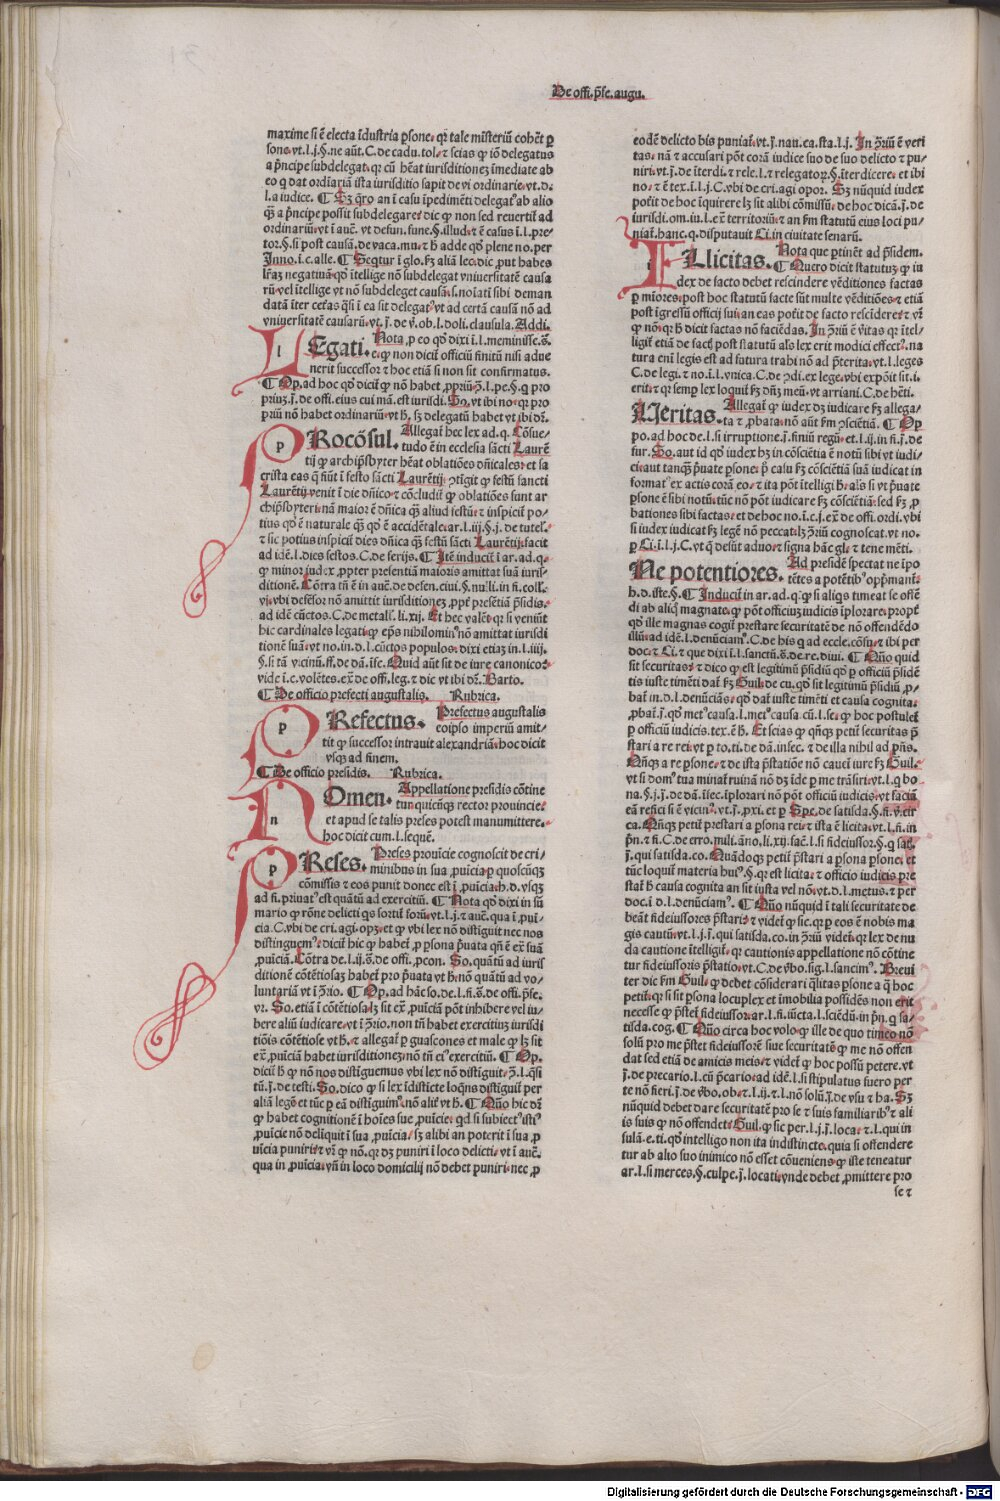 De offi. p̄fe. augu.
maxime si ē electa īdustria ꝑsone. qꝛ tale misteriū cohēt ꝑ
sone. vt. l. j. §. ne aūt. C. de cadu. tol. ⁊ scias ꝙ iō delegatus
a p̄ncipe subdelegat. qꝛ cū hēat iurisditionez īmediate ab
eo q dat ordīariā ista iurisditio sapit de vi ordinarie. vt. d.
l. a iudice. ¶ Sꝫ q̄ro an ī casu īpedimēti delegat᷒ ab alio
q̄ȝ a p̄ncipe possit subdelegare. dic ꝙ non sed reuertit᷑ ad
ordinariū. vt ī auē. vt defun. fune. §. illud. ⁊ ē casus ī. l. pre
tor. §. si post causā. de vaca. mu. ⁊ h̄ adde qd̓ plene no. per
Inno. ī. c. alle. ¶ Seqtur ī glo. sꝫ aliā lec. dic prout habes
lr̄aȝ negatiuā. qd̓ ītellige nō subdelegat vniuersitatē causa
rū. vel ītellige vt nō subdeleget causā. s. noīatī sibi deman
datā iter cet̓as q̄si ī ea sit delegat᷒. vt ad certā causā nō ad
vniuersitatē causarū. vt. ꝭ. de v̓. ob. l. doli clausula. Addi.
LEgati. Nota ꝑ eo qd̓ dixi ī. l. meminisse. s̄.
e. ꝙ non dicit᷑ officiū finitū nisi adue
nerit successor ⁊ hoc etiā si non sit confirmatus.
¶ Op. ad hoc qd̓ dicit᷑ ꝙ nō habet ꝓpriū. ꝫ. l. pe. §. q pro
prius. ꝭ. de offi. eius cui mā. est iurisdi. So. vt ibi no. qꝛ pro
priū nō habet ordinariū. vt h̄. sꝫ delegatū habet vt ibi dr̄.
PRocōsul. Allegat᷑ hec lex ad. q. Cōsue
tudo ē in ecclesia sācti Laurē
tij ꝙ archip̄sbyter hēat oblatiōes dn̄icales. et sa
crista eas q̄ fiūt ī festo sācti Laurētij. ꝯtīgit ꝙ festū sancti
Laurētij venit ī die dn̄ico ⁊ cōcludit᷑ ꝙ oblatiōes sunt ar
chip̄sbyteri. nā maior ē dn̄ica q̄ȝ aliud festū. ⁊ inspicit᷑ po
tius qd̓ ē naturale q̄ȝ qd̓ ē accidētale. ar. l. iij. §. j. de tutel᷒.
⁊ sic potius inspicit᷑ dies dn̄ica q̄ȝ festū sācti Laurētij. facit
ad idē. l. dies festos. C. de ferijs. ¶ Itē inducit᷑ ī ar. ad. q.
ꝙ minor iudex ꝓpter presentiā maioris amittat suā iuris
ditionē. Cōtra tn̄ ē in auē. de defen. ciui. §. nulli. in fi. coll᷒.
vj. vbi defēsor nō amittit iurisditionez ꝓpt̓ presētiā p̄sidis.
ad idē cūctos. C. de metall᷒. li. xij. Et hec valēt qꝛ si veniūt
hic cardinales legati. ꝙ ep̄s nibilomin᷒ nō amittat iurisdi
tionē suā. vt no. in. d. l. cūctos populos. dixi etiaȝ in. l. iiij.
§. si tā vicinū. ff. de dā. īfe. Quid aūt sit de iure canonico.
vide ī. c. volētes. ex̄. de off. leg. ⁊ dic vt ibi dr̄. Barto.
¶ De officio prefecti augustalis. Rubrica.
PRefectus. Prefectus augustalis
eoipso imperiū amit
tit ꝙ successor intrauit alexandriā. hoc dicit
vsqȝ ad finem.
¶ De officio presidis. Rubrica.
NOmen. Appellatione presidis cōtine
tur quicūqȝ rector prouincie.
et apud se talis preses potest manumittere.
hoc dicit cum. l. sequē.
PReses. Preses prouīcie cognoscit de cri
minibus in sua ꝓuīcia ꝑ quoscūqȝ
cōmissis ⁊ eos punit donec est ī ꝓuīcia. h. d. vsqȝ
ad fi. priuat᷒ est quātū ad exercitiū. ¶ Nota qd̓ dixi in sū
mario ꝙ rōne delicti qs sortit᷑ forū. vt. l. j. ⁊ auē. qua ī ꝓuī
cia. C. vbi de cri. agi opꝫ. et ꝙ vbi lex nō distīguit nec nos
distinguem᷒. ⁊ dicit᷑ hic ꝙ habet ꝑ ꝑsona p̄uata qn̄ ē ex̄ suā
ꝓuīciā. Cōtra de. l. ij. s̄. de offi. ꝓcon. So. quātū ad iuris
ditionē cōtētiosaȝ habet᷑ pro p̄uata vt h̄. nō quātū ad vo
luntariā vt ī ꝫrio. ¶ Op. ad hāc so. de. l. fi. s̄. de offi. p̄fe.
vr. So. etiā ī cōtētiosa lꝫ sit ex̄ ꝓuīciā pōt inhibere vel iu
bere aliū iudicare. vt ī ꝫrio. non tn̄ habet exercitiuȝ iurisdi
tiōis cōtētiose vt h̄. ⁊ allegat᷑ ꝑ guascones et male ꝙ lꝫ sit
ex̄ ꝓuīciā habet iurisditionez nō tn̄ ei᷒ exercitiū. ¶ Op.
dicit᷑ h̄ ꝙ nō nos distīguemus vbi lex nō distīguit. ꝫ. l. q̄si
tū. ꝭ. de testi. So. dico ꝙ si lex īdisticte loqns distīguit᷑ per
aliā legē ⁊ tūc ꝑ eā distīguim᷒. nō alit̓ vt h̄. ¶ Quo hic dr̄
ꝙ habet cognitionē ī hoīes sue ꝓuīcie. qd si subiect᷒ isti᷒
ꝓuīcie nō deliquit ī sua ꝓuīcia. sꝫ alibi an poterit ī sua ꝓ
uīcia puniri. ⁊ vr̄ ꝙ nō. qꝛ dꝫ puniri ī loco delicti. vt ī auē.
qua in ꝓuīcia. vn̄ in loco domicilij nō debet puniri. nec ꝓ
eodē delicto bis puniat᷑. vt. ꝭ. nau. ca. sta. l. j. In ꝫriū ē veri
tas. nā ⁊ accusari pōt corā iudice suo de suo delicto ⁊ pu
niri. vt. ꝭ. de īterdi. ⁊ rele. l. relegatoꝝ. §. īterdicere. et ibi
no. ⁊ ē tex. ī. l. j. C. vbi de cri. agi opor. Sꝫ nūquid iudex
poterit de hoc īquirere lꝫ sit alibi cōmissū. de hoc dicā. ꝭ. de
iurisdi. om. iu. l. ex̄ territoriū. ⁊ an fm̄ statutū eius loci pu
niat᷑. hanc. q. disputauit Ci. in ciuitate senarū.
ILlicitas. Nota que ꝑtinēt ad p̄sidem.
¶ Quero dicit statutuȝ ꝙ iu
dex de facto debet rescindere vēditiones factas
ꝑ miores. post hoc statutū facte sūt multe vēditiōes. ⁊ etiā
post īgressū officij sui. an eas poterit de facto rescīdere. ⁊ vr̄
ꝙ nō. qꝛ h̄ dicit factas nō faciēdas. In ꝫriū ē v̓itas qꝛ ītel
ligit᷑ etiā de factis post statutū als lex erit modici effect᷒. na
tura eni legis est ad futura trahi nō ad p̄terita. vt. l. leges
C. de legi. ⁊ no. ī. l. vnica. C. de ꝯdi. ex lege. vbi expōit sit. i.
erit. ⁊ qꝛ semꝑ lex loquit᷑ sꝫ dn̄ȝ meū. vt arriani. C. de hēti.
Veritas. Allegat᷑ ꝙ iudex dꝫ iudicare sꝫ allega
ta ⁊ ꝓbata. nō aūt fm̄ ꝯsciētiā. ¶ Op
po. ad hoc de. l. si irruptione. ꝭ. finiū regū. et. l. ij. in fi. ꝭ. de
fur. So. aut id qd̓ iudex hꝫ in cōsciētia ē notū sibi vt iudi
ci. aut tanqȝ p̄uate ꝑsone. p̄ casu sꝫ cōsciētiā suā iudicat in
format᷒ ex actis corā eo. ⁊ ita pōt ītelligi h̄. als si vt p̄uate
ꝑsone ē sibi notū. tūc nō pōt iudicare sꝫ cōsciētiā. sed sꝫ ꝓ
bationes sibi factas. et de hoc no. ī. c. j. ex̄ de offi. ordi. vbi
si iudex iudicat sꝫ legē nō peccat. lꝫ ꝫriū cognoscat. vt no.
ꝑ Ci. ī. l. j. C. vt q̄ desūt aduo. ⁊ signa hāc gl. ⁊ tene mēti.
Ne potentiores. Ad presidē spectat ne īpo
tētes a potētib᷒ opp̄mant᷑.
h. d. iste. §. ¶ Inducit᷑ in ar. ad. q. ꝙ si aliqs timeat se offē
di ab aliq̄ magnate. ꝙ pōt officiuȝ iudicis īplorare. propt̓
qd̓ ille magnas cogit᷑ prestare securitatē de nō offendēdo
illū. ad idē. l. denūciam᷒. C. de his q ad eccle. cōfu. ⁊ ibi per
doc. ⁊ Ci. ⁊ que dixi ī. l. sanctū. s̄. de re. diui. ¶ Quo quid
sit securitas. ⁊ dico ꝙ est legitimū p̄sidiū qd̓ ꝑ officiū p̄sidē
tis iuste timēti dat᷑ sꝫ Guil. de cu. qd̓ sit legitimū p̄sidiū ꝓ
bat᷑ in. d. l. denūciās. qd̓ dat᷑ iuste timēti et causa cognita.
ꝓbat᷑. ꝭ. qd̓ met᷒ causa. l. met᷒ causa. cū. l. se. ꝙ hoc postulet᷑
ꝑ officiū iudicis. tex. ē h̄. Et scias ꝙ qn̄qȝ petit᷑ securitas p̄
stari a re rei. vt ꝑ to. ti. de dā. infec. ⁊ de illa nihil ad p̄ns.
Qn̄qȝ a re ꝑsone. ⁊ de ista p̄statiōe nō cauet᷑ iure sꝫ Guil.
vt si dom᷒ tua minat᷑ ruinā nō dꝫ īde ꝑ me trāsiri. vt. l. q bo
na. §. j. ꝭ. de dā. īfec. īplorari nō pōt officiū iudicis. vt faciā
eā refici si ē vicin᷒. vt. ꝭ. ꝓxi. et ꝑ Spe. de satisda. §. fi. v̓. cir
ca. Qn̄qȝ petit᷑ prestari a ꝑsona rei. ⁊ ista ē licita. vt. l. fi. in
p̄n. ⁊ fi. C. de erro. mili. āno. li. xij. facē. l. si fideiussor. §. q sat᷒.
ꝭ. qui satisda. co. Quādoqȝ petit᷑ p̄stari a ꝑsona ꝑsone. et
tūc loquit᷑ materia hui᷒. §. qꝛ est licita. ⁊ officio iudicis pre
stat᷑ h̄ causa cognita an sit iusta vel nō. vt. d. l. metus. ⁊ per
doc. ī. d. l. denūciam᷒. ¶ Quo nūquid ī tali securitate de
beāt fideiussores p̄stari. ⁊ videt᷑ ꝙ sic. qꝛ ꝑ eos ē nobis ma
gis cautū. vt. l. j. ꝭ. qui satisda. co. in ꝫriū videt᷑. qꝛ lex de nu
da cautione ītelligit᷑. qꝛ cautionis appellatione nō cōtine
tur fideiussoris p̄statio. vt. C. de v̓bo. sig. l. sancim᷒. Breui
ter dic fm̄ Guil. ꝙ debet cōsiderari q̄litas ꝑsone a q̄ hoc
petit᷑. qꝛ si sit ꝑsona locuplex et imobilia possidēs non erit
necesse ꝙ p̄stet᷑ fideiussor. ar. l. fi. iūcta. l. sciēdū. in p̄n. q sa
tisda. cog. ¶ Quo circa hoc volo ꝙ ille de quo timeo nō
solū pro me p̄stet fideiussorē siue securitatē ꝙ me nō offen
dat sed etiā de amicis meis. ⁊ videt᷑ ꝙ hoc possū petere. vt
ꝭ. de precario. l. cū p̄cario. ad idē. l. si stipulatus fuero per
te nō fieri. ꝭ. de v̓bo. ob. ⁊. l. ij. ⁊. l. nō solū. ꝭ. de vsu ⁊ ha. Sꝫ
nūquid debet dare securitatē pro se ⁊ suis familiarib᷒ ⁊ ali
is suis ꝙ nō offendet. Guil. ꝙ sic per. l. j. ꝭ. loca. ⁊. l. qui in
sulā. e. ti. qd̓ intelligo non ita indistincte. quia si offendere
tur ab alio suo inimico nō esset cōueniens ꝙ iste teneatur
ar. l. si merces. §. culpe. ꝭ. locati. vnde debet ꝓmittere pro
se ⁊
Digitalisierung gefördert durch die Deutsche Forschungsgemeinschaft - DFG